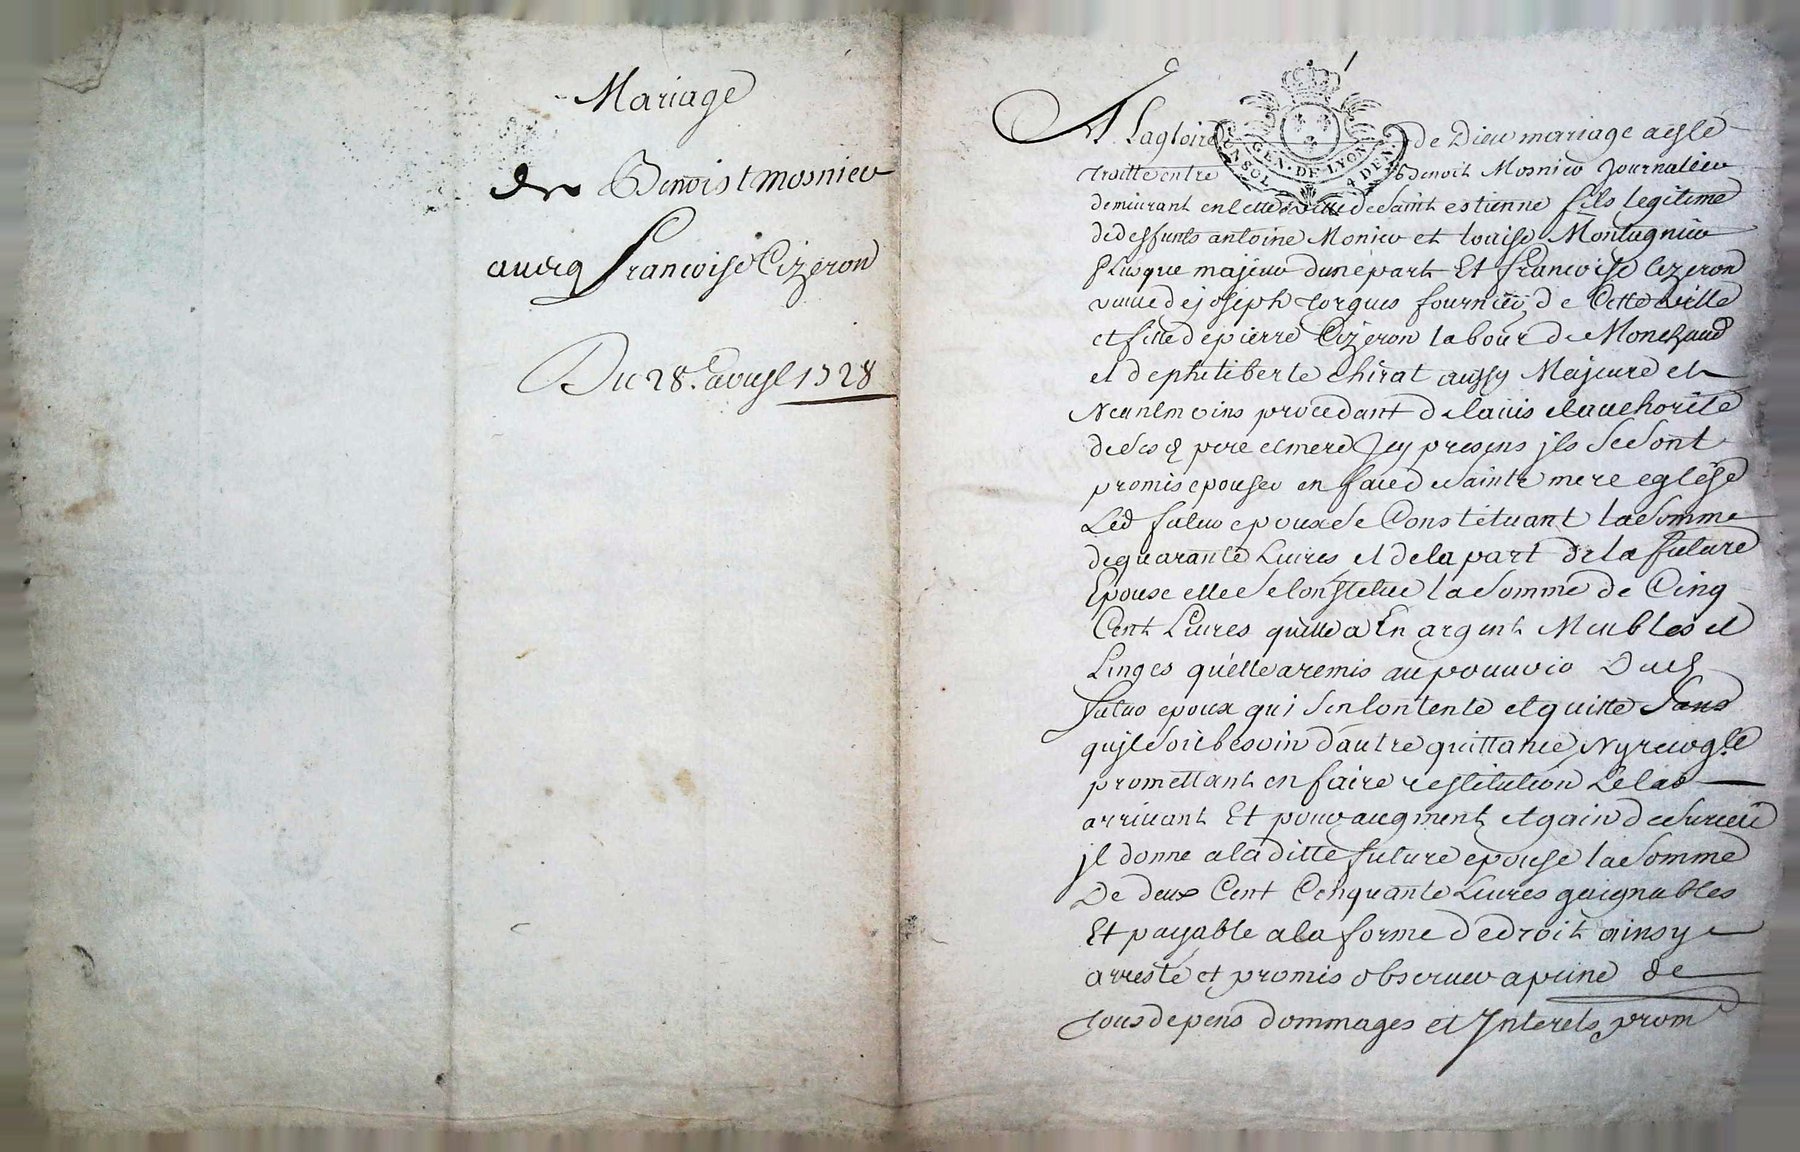 Mariage
de Benoist mosnier
auecq francoise Cizeron
Du 28e. auril 1728
A Lagloire de Dieu mariage aesté
traitté entre Benoit Mosnier Journalier
demeurant en cette ville de Saint estienne fils legitime
de deffunts antoine Monier et louise Montagnier
plusque majeur dunepart Et francoise Cizeron
vueue dejoseph Jorques fournier de Cette ville
et fille depierre Cizeron labour de Monchaud
et dephiliberte Chirat aussy Majeure et
Neanlmoins procedant de lauis et authorité
desesd pere et mere Jcy presens jls Sesont
promis epouser en face de Sainte mere eglise
Led futur epoux se Constituant la Somme
dequarante Liures et de la part de la future
Epouse elle Se Constitue la Somme de Cinq
Cent Liures quelle a En argent Meubles et
Linges qu'elle a remis au pouuoir Dud
futur epoux qui Sen Contente et quitte Sans
quil Soit besoin dautre quittance Ny recogle
promettant en faire restitution Le Cas
arriuant Et pour augment et gain de Suruie
jl donne a laditte future epouse la Somme
De deux Cent Cinquante Liures gaignables
Et payable a la forme dedroit ainsy
arresté et promis obseruer a peine de
tous depens dommages et Jnterets prom
GEN. DE LYON
UN SOL 4 DEN.